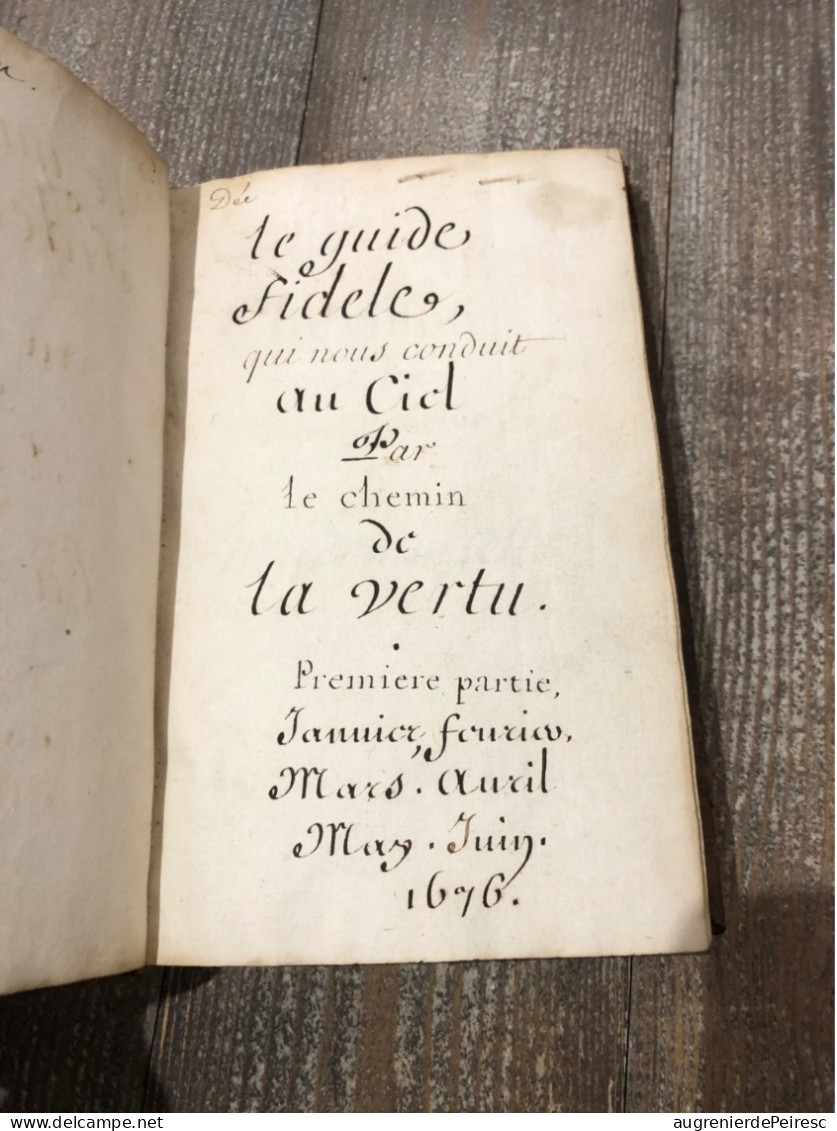 Dée
le guide
fidele,
qui nous conduit
au Ciel
Par
le chemin
de
la vertu.
Premiere partie,
Januier, feurier,
Mars. Auril
May. Juin.
1676.
delcampe.net
augrenierdePeiresc